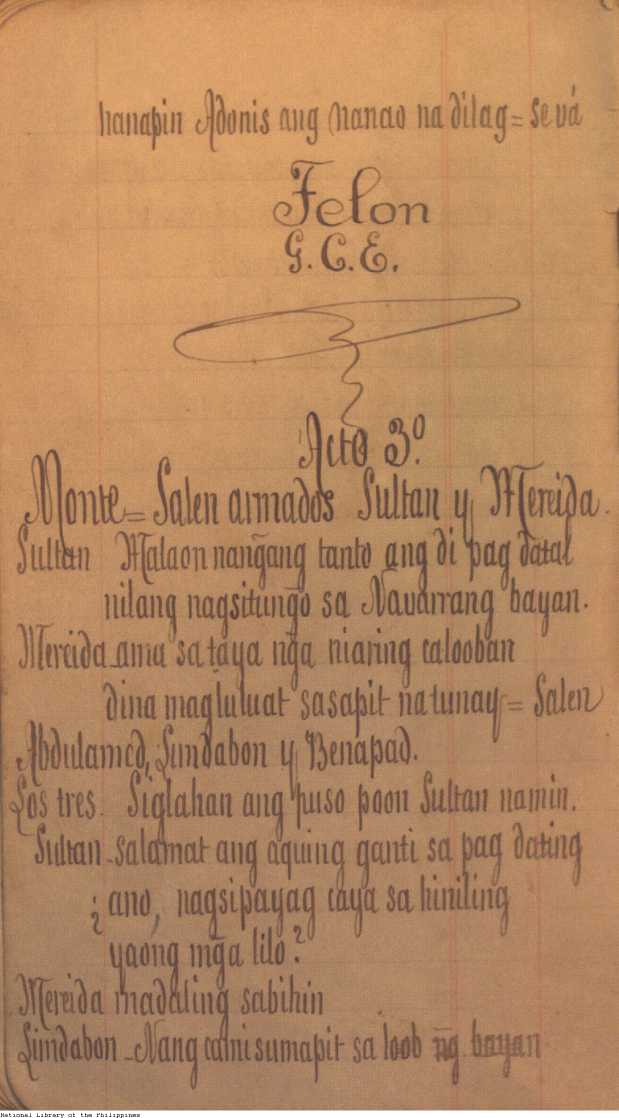 hanapin Adonis ang nanao na dilag = se vá
Felon
G. C. E.
Acto 3º
Monte = Salen armados Sultan y Mereida.
Sultan Malaon nang̃ang tanto ang di pag datal
nilang nagsitung̃o sa Navarrang bayan.
Mereida - ama sa taya ng̃a niaring calooban
dina magluluat sasapit na tunay = Salen
Abdulamed, Lindabon y Benapad.
Los tres. Siglahan ang puso poon Sultan namin.
Sultan - salamat ang aquing ganti sa pag dating
¿ ano, nagsipayag caya sa hiniling
yaong mg̃a lilo?
Mereida madaling sabihin
Lindabon - Nang cami sumapit sa loob ng̃ bayan
National Library of the Philippines